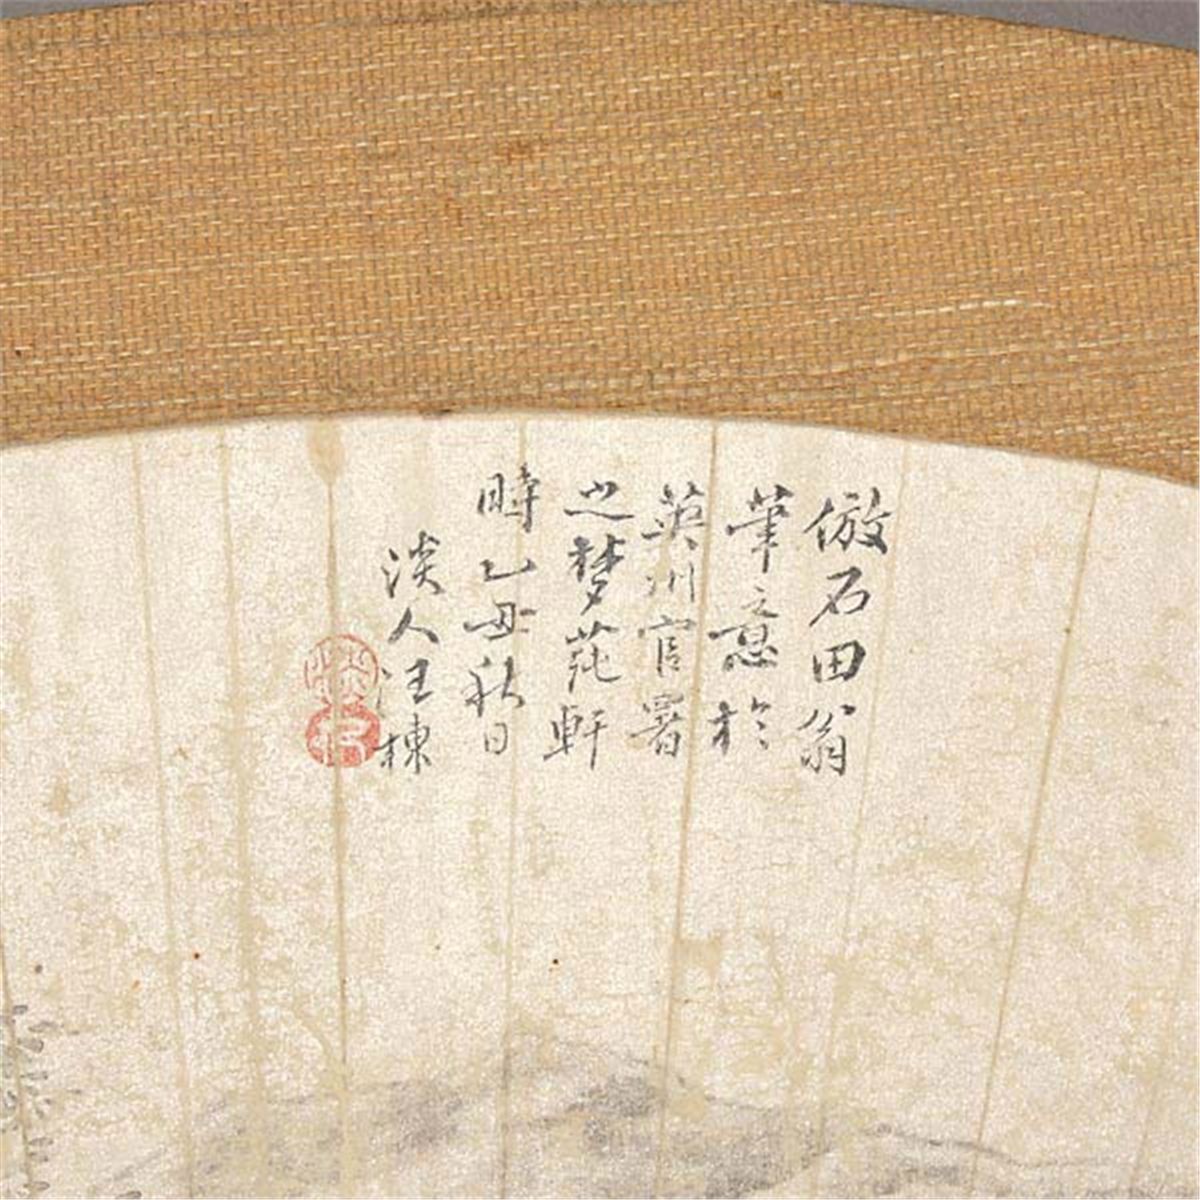 倣石田翁
筆之意於
英州官署
之梦花軒
時乙丑秋日
淡人汪棟
淡人